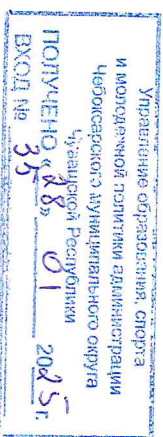 Управление образования, спорта
и молодежной политики администрации
Чебоксарского муниципального округа
Чувашской Республики
ПОЛУЧЕНО «28» 01 2025 г.
ВХОД № 35